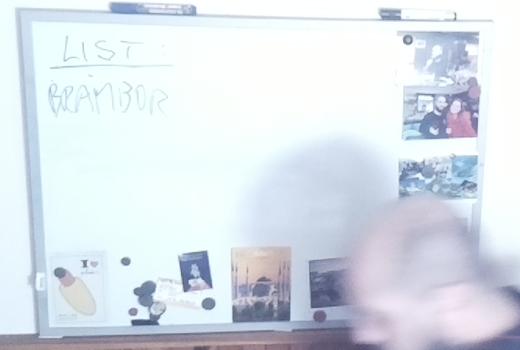 LIST:
BRAMBOR
I ♥